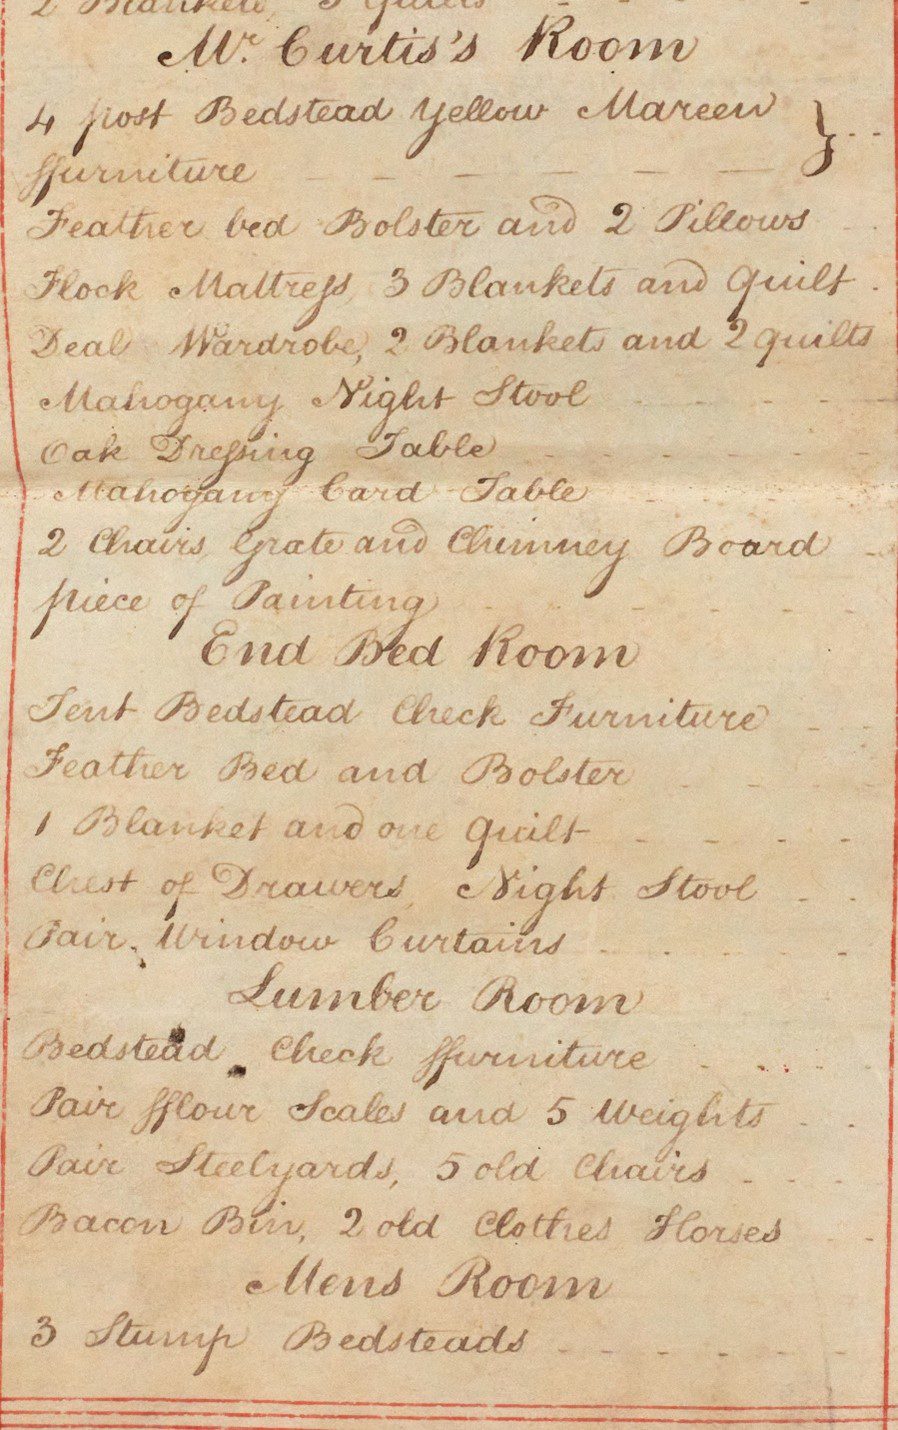 2 Blankets, 3 Quilts
Mr. Curtis's Room
4 post Bedstead Yellow Mareen }
ffurniture
Feather bed Bolster and 2 Pillows
Flock Mattress, 3 Blankets and Quilt
Deal Wardrobe, 2 Blankets and 2 quilts
Mahogany Night Stool
Oak Dressing Table
Mahogany Card Table
2 Chairs, Grate and Chimney Board
piece of Painting
End Bed Room
Tent Bedstead Check Furniture
Feather Bed and Bolster
1 Blanket and one Quilt
Chest of Drawers, Night Stool
Pair Window Curtains
Lumber Room
Bedstead Check ffurniture
Pair fflour Scales and 5 Weights
Pair Steelyards, 5 old Chairs
Bacon Bin, 2 old Clothes Horses
Mens Room
3 Stump Bedsteads